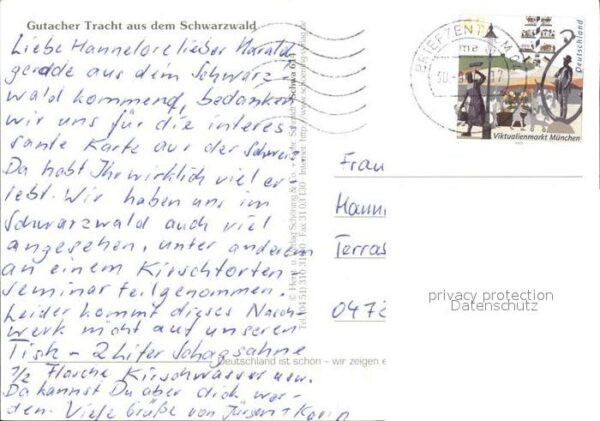 Gutacher Tracht aus dem Schwarzwald
Liebe Hannelore lieber Harald
gerade aus dem Schwarz-
wald kommend, bedanken
wir uns für die interes
sante Karte aus der Schweiz
Da habt Ihr wirklich viel er
lebt. Wir haben uns im
Schwarzwald auch viel
angesehen, unter anderem
an einem Kirschtorten
seminar teilgenommen.
Leider kommt dieses Nasch-
werk nicht auf unseren
Tisch - 2 Liter Schlagsahne
1/2 Flasche Kirschwasser usw.
Da kannst Du aber dick wer-
den. Viele Grüße von Jürgen + Karin
Deutschland ist schön – wir zeigen e
BRIEFZENTRUM
Deutschland
Viktualienmarkt München
Frau
Hann
Terras
0472
privacy protection
Datenschutz